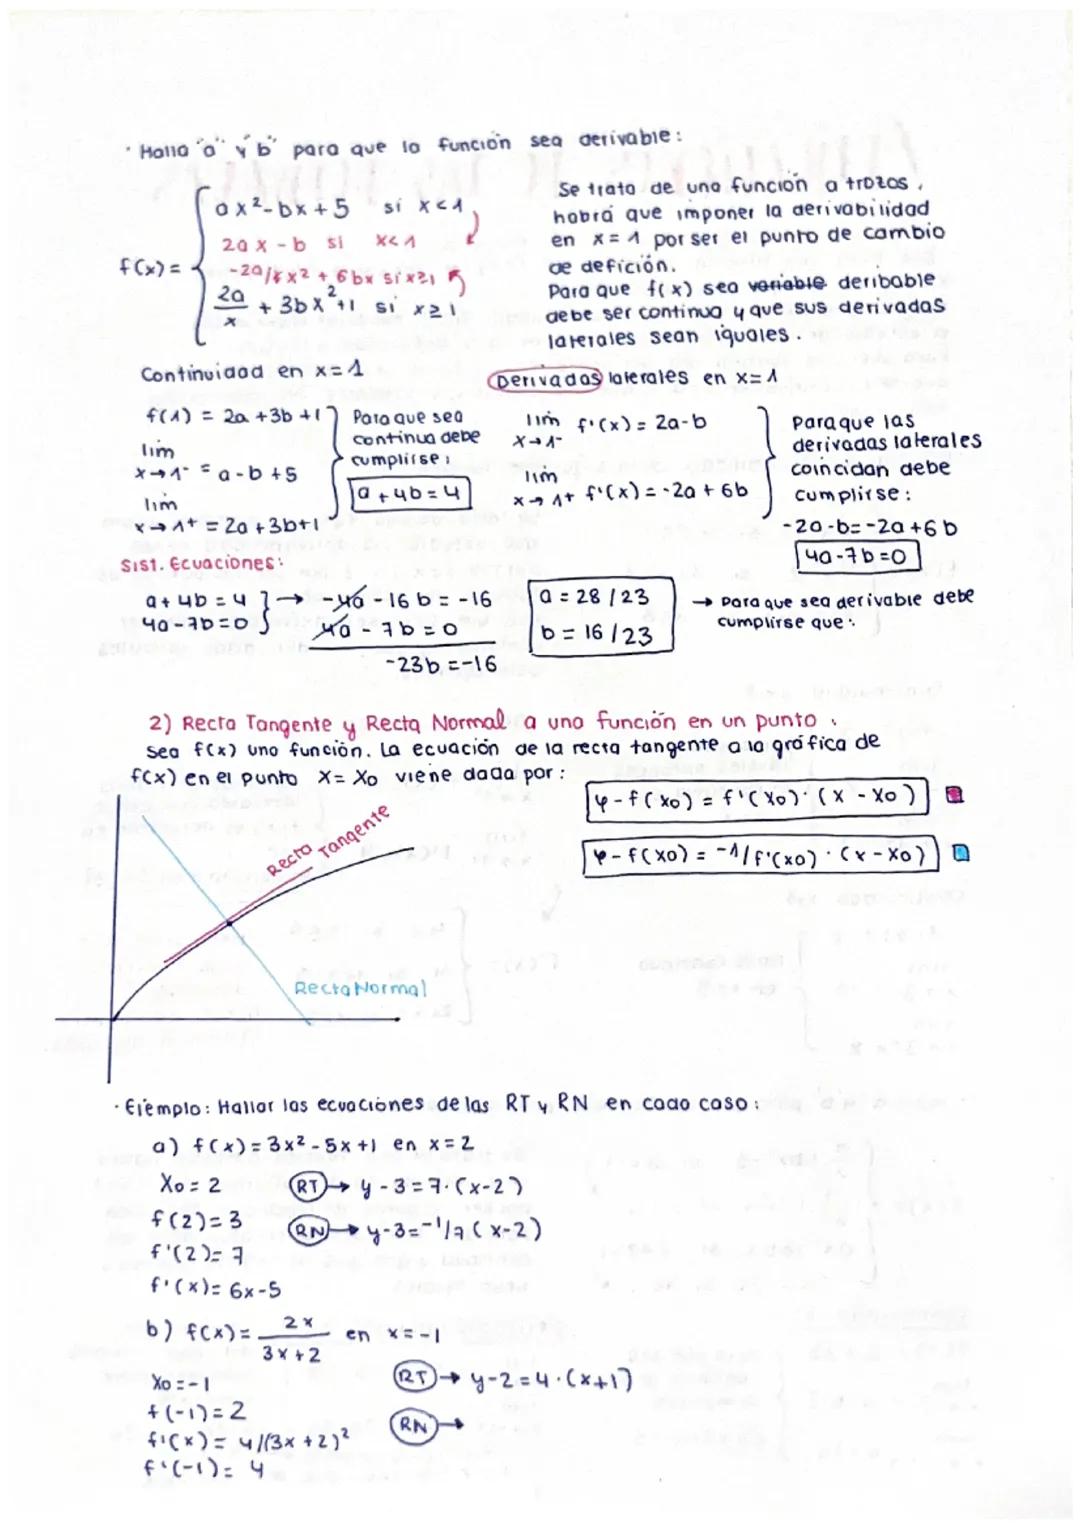 · Halla "a" y "b" para que la función sea derivable:
f(x) =
ax² - bx + 5 si x < 1
2ax - b si x < 1
-2a/x² + 6bx si x ≥ 1
2a/x + 3bx² + 1 si x ≥ 1
Se trata de una función a trozos,
habrá que imponer la derivabilidad
en x = 1 por ser el punto de cambio
de defición.
Para que f(x) sea variable deribable
debe ser continua y que sus derivadas
laterales sean iguales.
Continuidad en x = 1
f(1) = 2a + 3b + 1
lim
x→1⁻ = a - b + 5
lim
x→1⁺ = 2a + 3b + 1
Para que sea
continua debe
cumplirse:
a + 4b = 4
Derivadas laterales en x = 1
lim f'(x) = 2a - b
x→1⁻
lim
x→1⁺ f'(x) = -2a + 6b
Para que las
derivadas laterales
coincidan debe
cumplirse:
-2a - b = -2a + 6b
4a - 7b = 0
Sist. Ecuaciones:
a + 4b = 4 → -4a - 16b = -16
4a - 7b = 0 4a - 7b = 0
-23b = -16
a = 28/23
b = 16/23
→ Para que sea derivable debe
cumplirse que:
2) Recta Tangente y Recta Normal a una función en un punto.
Sea f(x) una función. La ecuación de la recta tangente a la gráfica de
f(x) en el punto x = x₀ viene dada por:
y - f(x₀) = f'(x₀) · (x - x₀)
y - f(x₀) = -1/f'(x₀) · (x - x₀)
Recta Tangente
Recta Normal
· Ejemplo: Hallar las ecuaciones de las RT y RN en cada caso:
a) f(x) = 3x² - 5x + 1 en x = 2
x₀ = 2
f(2) = 3
f'(2) = 7
f'(x) = 6x - 5
RT → y - 3 = 7 · (x - 2)
RN → y - 3 = -1/7 (x - 2)
b) f(x) = 2x/3x + 2 en x = -1
x₀ = -1
f(-1) = 2
f'(x) = 4/(3x + 2)²
f'(-1) = 4
RT → y - 2 = 4 · (x + 1)
RN →